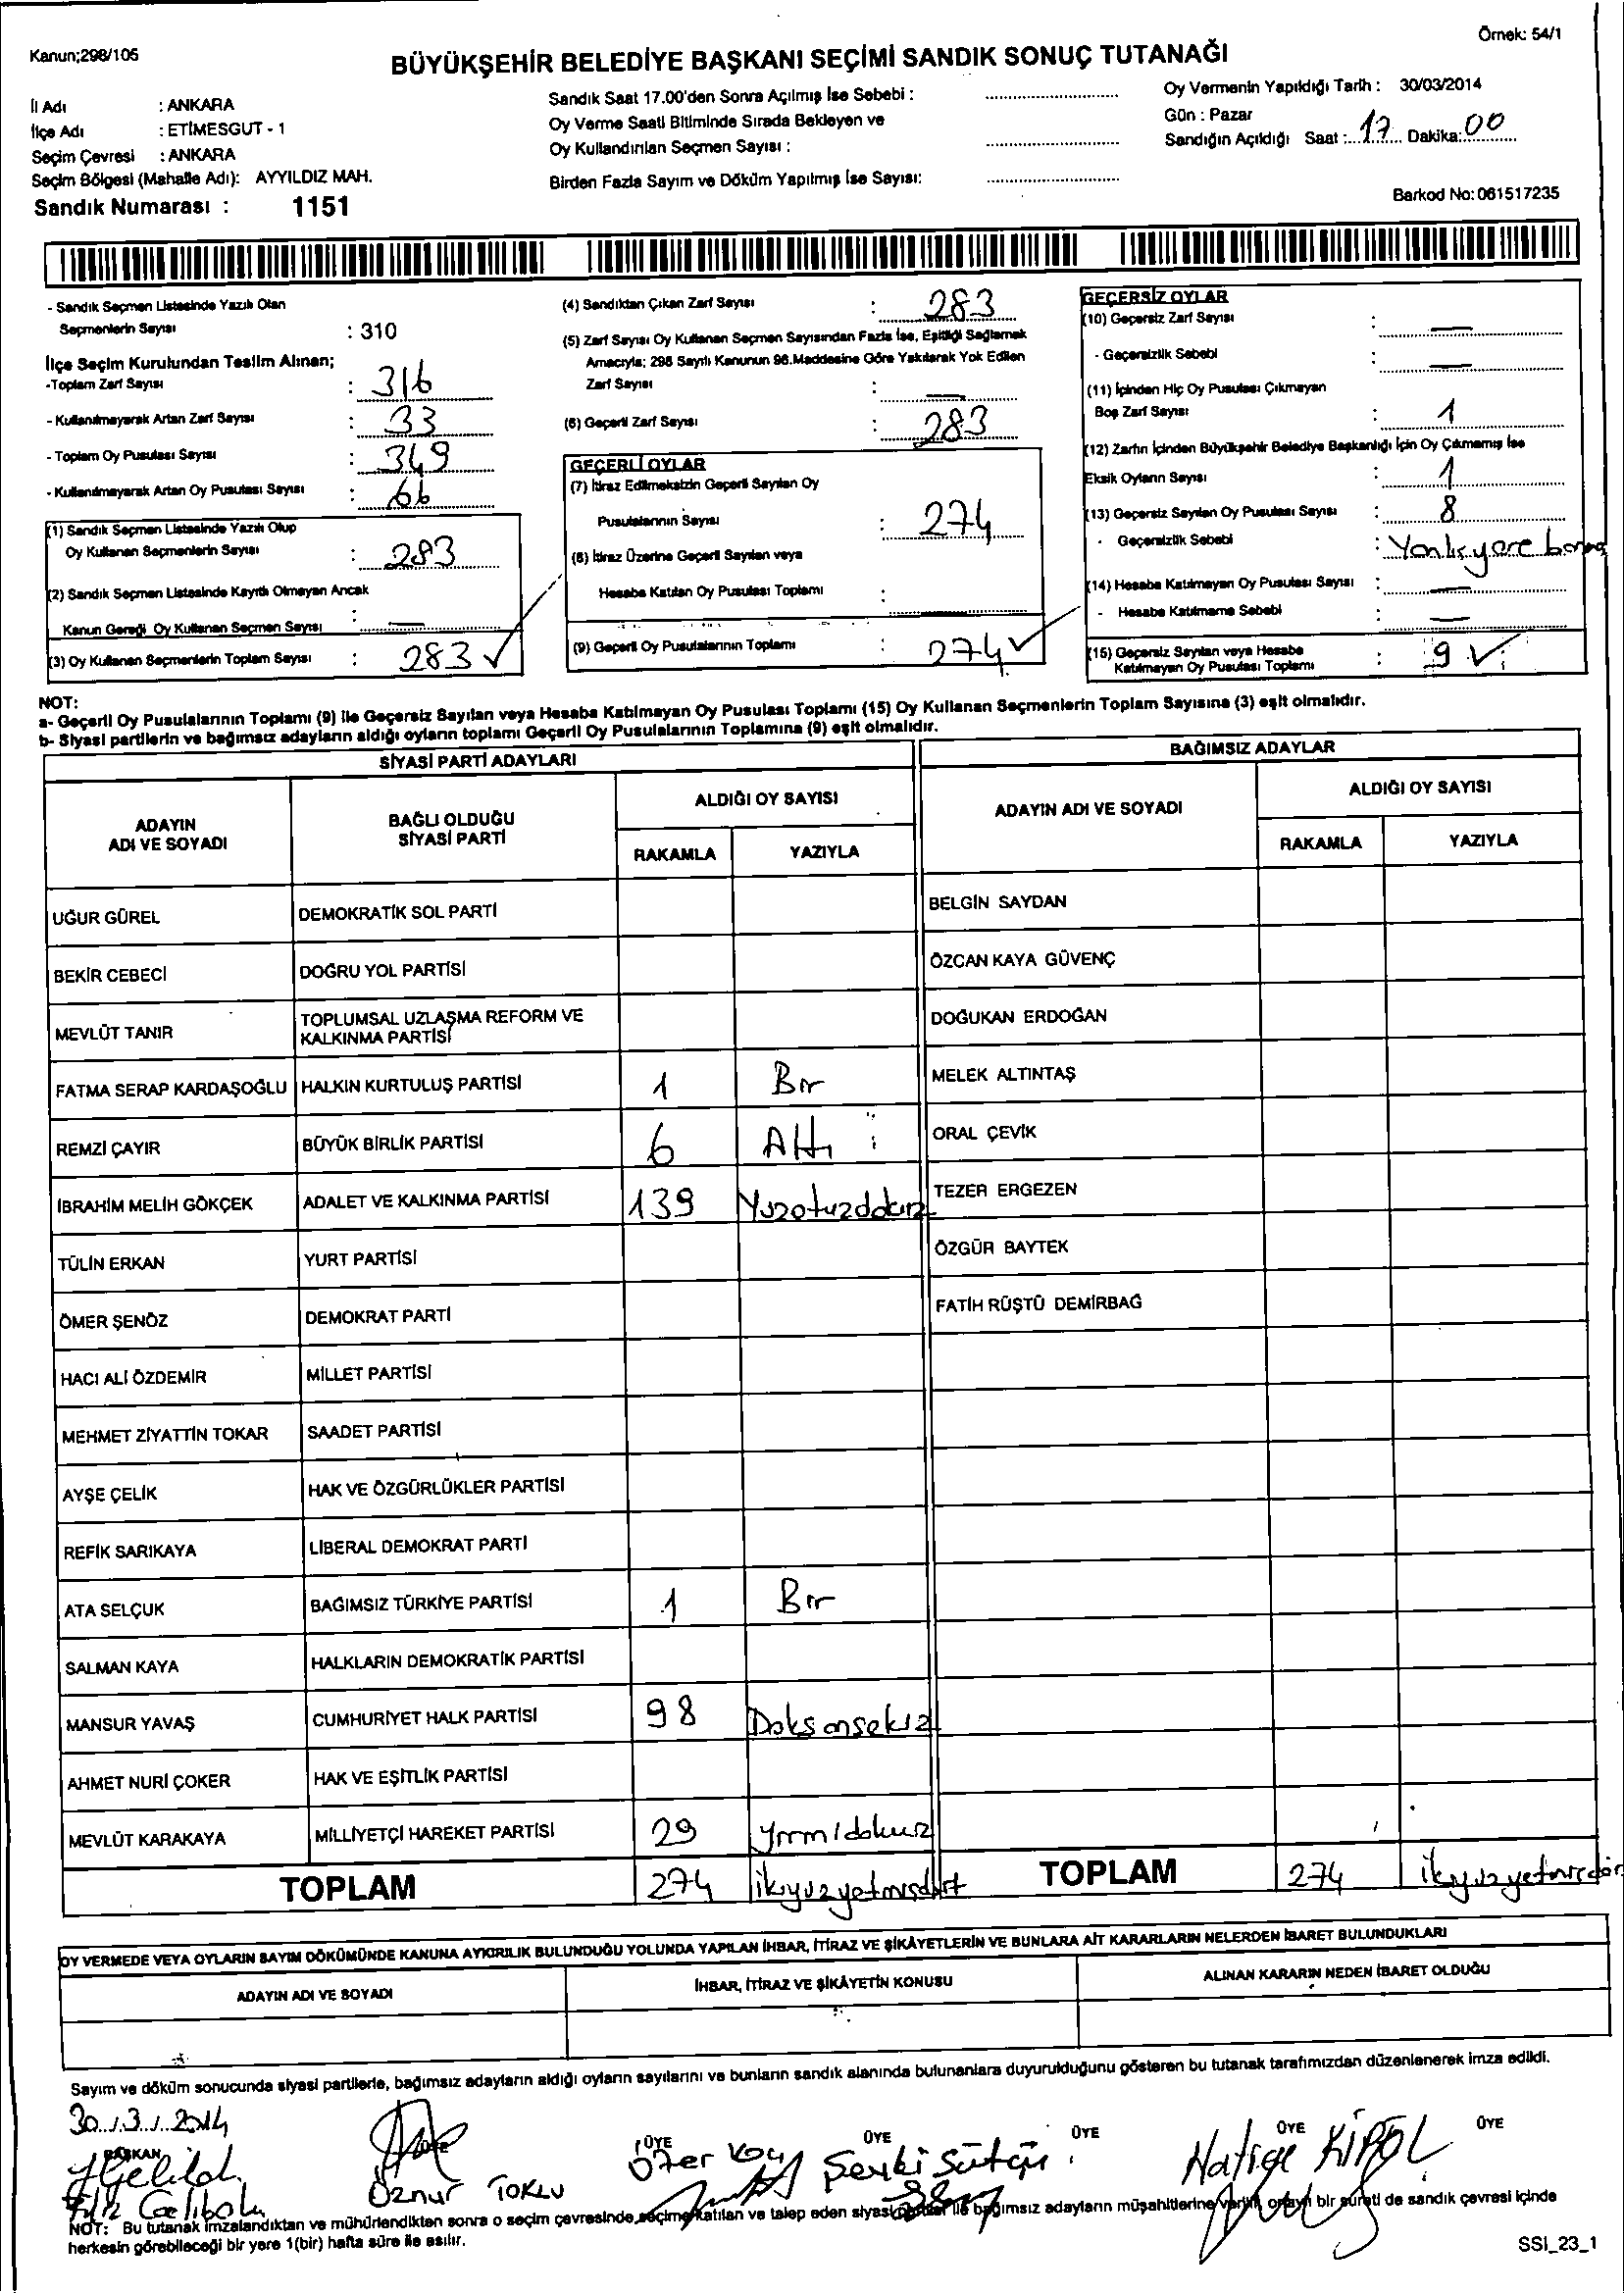 Kanun;298/105
Örnek: 54/1
BÜYÜKŞEHİR BELEDİYE BAŞKANI SEÇİMİ SANDIK SONUÇ TUTANAĞI
İl Adı : ANKARA
İlçe Adı : ETİMESGUT - 1
Seçim Çevresi : ANKARA
Seçim Bölgesi (Mahalle Adı): AYYILDIZ MAH.
Sandık Numarası : 1151
Sandık Saat 17.00'den Sonra Açılmış İse Sebebi :
Oy Verme Saati Bitiminde Sırada Bekleyen ve
Oy Kullandırılan Seçmen Sayısı :
Birden Fazla Sayım ve Döküm Yapılmış İse Sayısı:
Oy Vermenin Yapıldığı Tarih : 30/03/2014
Gün : Pazar
Sandığın Açıldığı Saat : 17 Dakika: 00
Barkod No: 061517235
- Sandık Seçmen Listesinde Yazılı Olan
Seçmenlerin Sayısı : 310
İlçe Seçim Kurulundan Teslim Alınan;
-Toplam Zarf Sayısı : 316
- Kullanılmayarak Artan Zarf Sayısı : 33
- Toplam Oy Pusulası Sayısı : 349
- Kullanılmayarak Artan Oy Pusulası Sayısı : 66
(1) Sandık Seçmen Listesinde Yazılı Olup
Oy Kullanan Seçmenlerin Sayısı : 283
(2) Sandık Seçmen Listesinde Kayıtlı Olmayan Ancak
Kanun Gereği Oy Kullanan Seçmen Sayısı : —
(3) Oy Kullanan Seçmenlerin Toplam Sayısı : 283 ✓
(4) Sandıktan Çıkan Zarf Sayısı : 283
(5) Zarf Sayısı Oy Kullanan Seçmen Sayısından Fazla İse, Eşitliği Sağlamak
Amacıyla; 298 Sayılı Kanunun 98.Maddesine Göre Yakılarak Yok Edilen
Zarf Sayısı : —
(6) Geçerli Zarf Sayısı : 283
GEÇERLİ OYLAR
(7) İtiraz Edilmeksizin Geçerli Sayılan Oy
Pusulalarının Sayısı : 274
(8) İtiraz Üzerine Geçerli Sayılan veya
Hesaba Katılan Oy Pusulası Toplamı :
(9) Geçerli Oy Pusulalarının Toplamı : 274 ✓
GEÇERSİZ OYLAR
(10) Geçersiz Zarf Sayısı : —
- Geçersizlik Sebebi : —
(11) İçinden Hiç Oy Pusulası Çıkmayan
Boş Zarf Sayısı : 1
(12) Zarfın İçinden Büyükşehir Belediye Başkanlığı İçin Oy Çıkmamış İse
Eksik Oyların Sayısı : 1
(13) Geçersiz Sayılan Oy Pusulası Sayısı : 8
- Geçersizlik Sebebi : Yanlış yere
(14) Hesaba Katılmayan Oy Pusulası Sayısı : —
- Hesaba Katılmama Sebebi : —
(15) Geçersiz Sayılan veya Hesaba
Katılmayan Oy Pusulası Toplamı : 9 ✓
NOT:
a- Geçerli Oy Pusulalarının Toplamı (9) ile Geçersiz Sayılan veya Hesaba Katılmayan Oy Pusulası Toplamı (15) Oy Kullanan Seçmenlerin Toplam Sayısına (3) eşit olmalıdır.
b- Siyasi partilerin ve bağımsız adayların aldığı oyların toplamı Geçerli Oy Pusulalarının Toplamına (9) eşit olmalıdır.
SİYASİ PARTİ ADAYLARI
ADAYIN ADI VE SOYADI
BAĞLI OLDUĞU SİYASİ PARTİ
ALDIĞI OY SAYISI
RAKAMLA YAZIYLA
UĞUR GÜREL DEMOKRATİK SOL PARTİ
BEKİR CEBECİ DOĞRU YOL PARTİSİ
MEVLÜT TANIR TOPLUMSAL UZLAŞMA REFORM VE KALKINMA PARTİSİ
FATMA SERAP KARDAŞOĞLU HALKIN KURTULUŞ PARTİSİ 1 Bir
REMZİ ÇAYIR BÜYÜK BİRLİK PARTİSİ 6 Altı
İBRAHİM MELİH GÖKÇEK ADALET VE KALKINMA PARTİSİ 139 Yüzotuzdokuz
TÜLİN ERKAN YURT PARTİSİ
ÖMER ŞENÖZ DEMOKRAT PARTİ
HACI ALİ ÖZDEMİR MİLLET PARTİSİ
MEHMET ZİYATTİN TOKAR SAADET PARTİSİ
AYŞE ÇELİK HAK VE ÖZGÜRLÜKLER PARTİSİ
REFİK SARIKAYA LİBERAL DEMOKRAT PARTİ
ATA SELÇUK BAĞIMSIZ TÜRKİYE PARTİSİ 1 Bir
SALMAN KAYA HALKLARIN DEMOKRATİK PARTİSİ
MANSUR YAVAŞ CUMHURİYET HALK PARTİSİ 98 Doksansekiz
AHMET NURİ ÇOKER HAK VE EŞİTLİK PARTİSİ
MEVLÜT KARAKAYA MİLLİYETÇİ HAREKET PARTİSİ 29 Yirmidokuz
TOPLAM 274 ikiyüzyetmişdört
BAĞIMSIZ ADAYLAR
ADAYIN ADI VE SOYADI
ALDIĞI OY SAYISI
RAKAMLA YAZIYLA
BELGİN SAYDAN
ÖZCAN KAYA GÜVENÇ
DOĞUKAN ERDOĞAN
MELEK ALTINTAŞ
ORAL ÇEVİK
TEZER ERGEZEN
ÖZGÜR BAYTEK
FATİH RÜŞTÜ DEMİRBAĞ
TOPLAM 274 ikiyüzyetmişdör
OY VERMEDE VEYA OYLARIN SAYIM DÖKÜMÜNDE KANUNA AYKIRILIK BULUNDUĞU YOLUNDA YAPILAN İHBAR, İTİRAZ VE ŞİKÂYETLERİN VE BUNLARA AİT KARARLARIN NELERDEN İBARET BULUNDUKLARI
ADAYIN ADI VE SOYADI
İHBAR, İTİRAZ VE ŞİKÂYETİN KONUSU
ALINAN KARARIN NEDEN İBARET OLDUĞU
Sayım ve döküm sonucunda siyasi partilerle, bağımsız adayların aldığı oyların sayılarını ve bunların sandık alanında bulunanlara duyurulduğunu gösteren bu tutanak tarafımızdan düzenlenerek imza edildi.
30/3/2014
BAŞKAN ÜYE ÜYE ÜYE ÜYE ÜYE ÜYE
Filiz Gelibolu
Öznur TOKLU
Özer Koç
Şevki Sütçü
Hatice KİPOL
NOT: Bu tutanak imzalandıktan ve mühürlendikten sonra o seçim çevresinde seçime katılan ve talep eden siyasi partiler ile bağımsız adayların müşahitlerine verilir, onaylı bir sureti de sandık çevresi içinde
herkesin görebileceği bir yere 1(bir) hafta süre ile asılır.
SSI_23_1